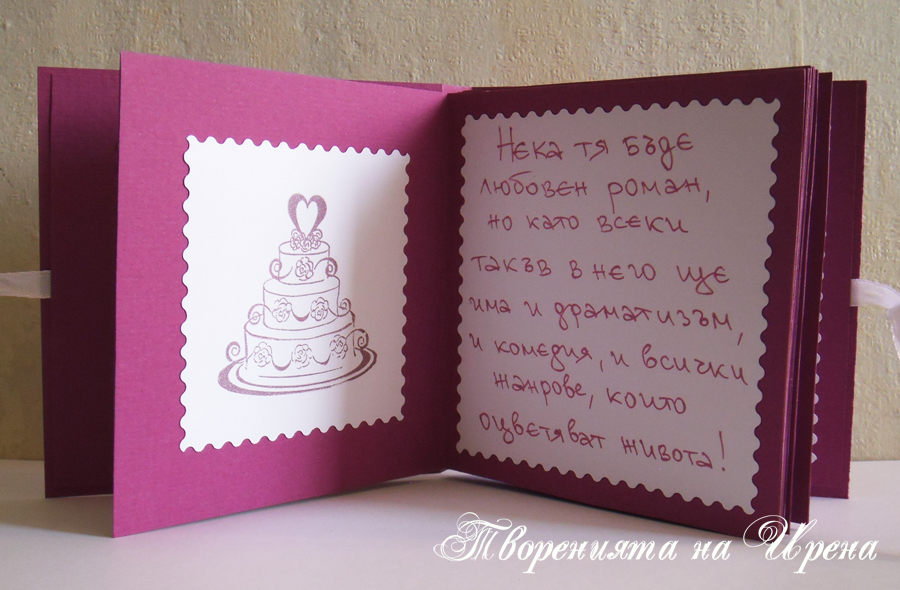 Нека тя бъде
любовен роман,
но като всеки
такъв в него ще
има и драматизъм,
и комедия, и всички
жанрове, които
оцветяват живота!
Творенията на Ирена